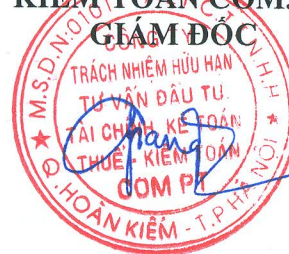 KIỂM TOÁN COM.
GIÁM ĐỐC
M.S.D.N:0101
C.T.T.N.H.H
CÔNG
TRÁCH NHIỆM HỮU HẠN
TƯ VẤN ĐẦU TƯ
TÀI CHÍNH, KẾ TOÁN
THUẾ - KIỂM TOÁN
COM PT
Q. HOÀN KIẾM - T.P HÀ NỘI